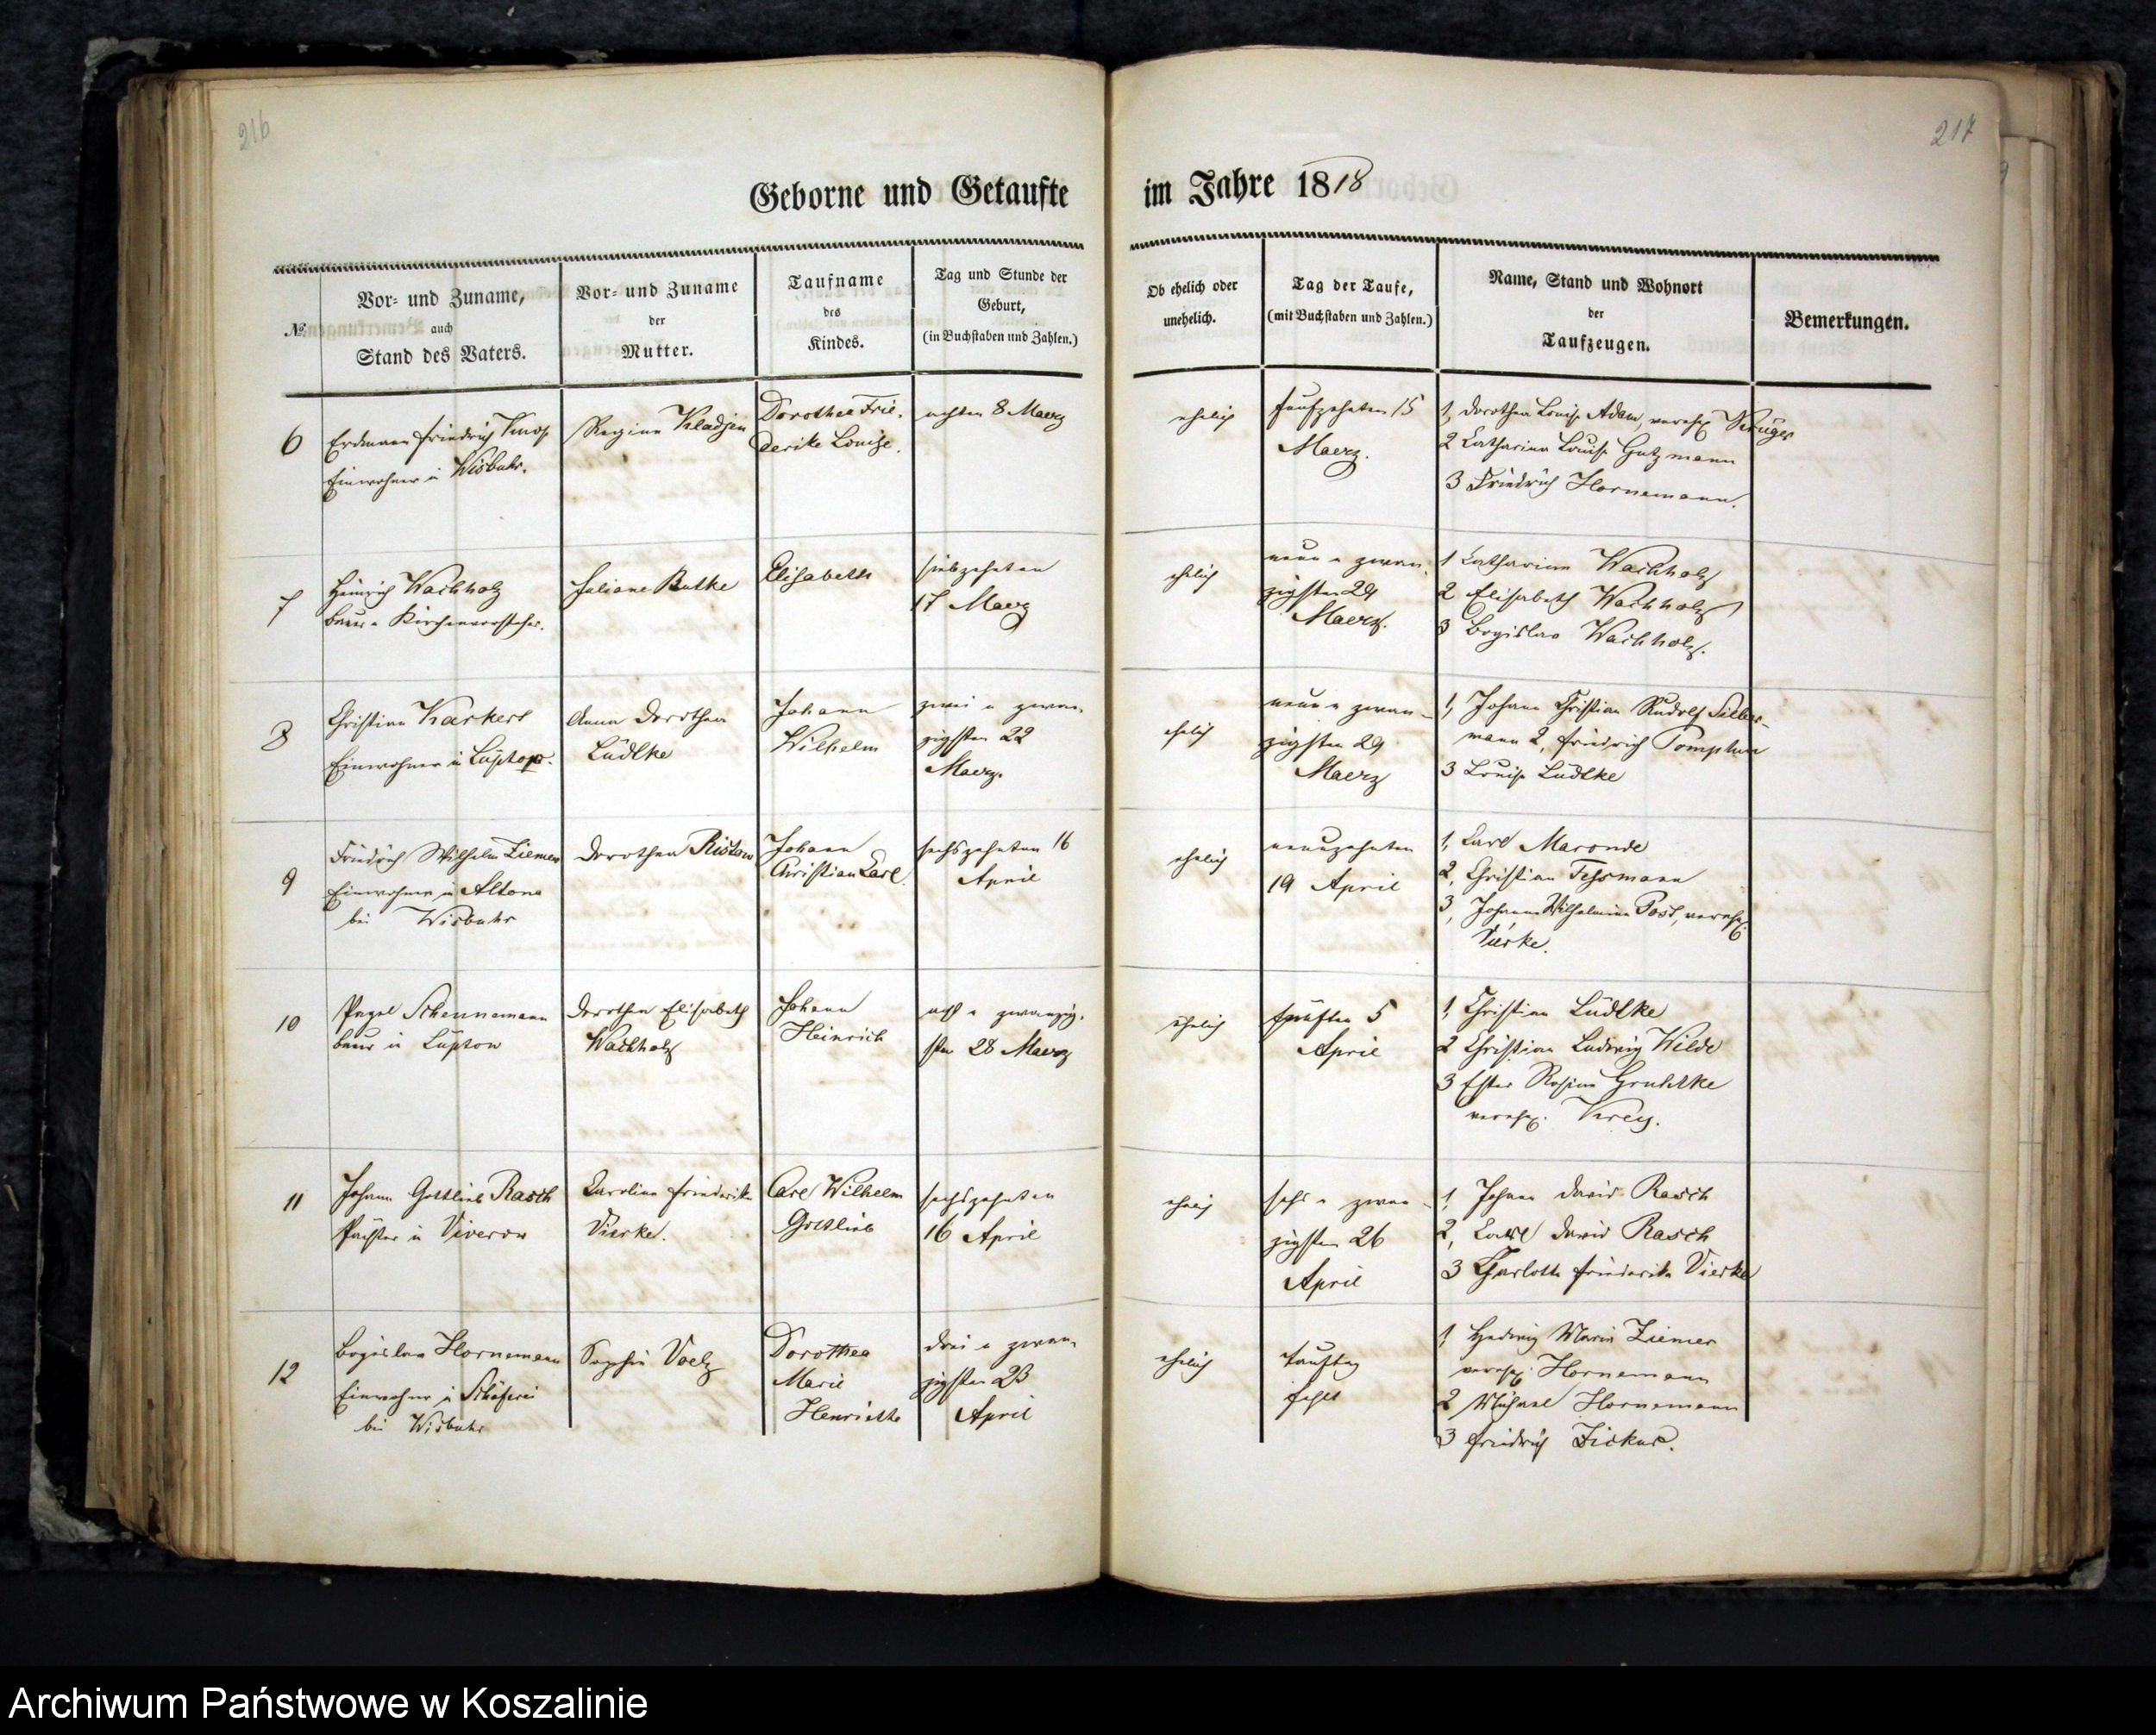 216
217
Geborne und Getaufte
im Jahre 1818
№
Vor- und Zuname,
auch
Stand des Vaters.
Vor- und Zuname
der
Mutter.
Taufname
des
Kindes.
Tag und Stunde der
Geburt,
(in Buchstaben und Zahlen.)
Ob ehelich oder
unehelich.
Tag der Taufe,
(mit Buchstaben und Zahlen.)
Name, Stand und Wohnort
der
Taufzeugen.
Bemerkungen.
6
Erdmann Friedrich
Einwohner in Wisbuhr.
Regina Kladjen
Dorothea Frie-
derike Louise.
achten 8 Maerz
ehelich
funfzehnten 15
Maerz.
1, Dorothea Louise Adam, verehel. Krüger
2 Catharina Louise Gutzmann
3 Friedrich Hornemann.
7
Heinrich Wachholz
Bauer u Kirchenvorsteher.
Juliane Butke
Elisabeth
siebzehnten
17 Maerz
ehelich
neun u zwan-
zigsten 29
Maerz.
1 Catharina Wachholz
2 Elisabeth Wachholz
3 Bogislav Wachholz.
8
Christian Karkert
Einwohner in Lüptow.
Anna Dorothea
Lüdtke
Johann
Wilhelm
zwei u zwan-
zigsten 22
Maerz.
ehelich
neun u zwan-
zigsten 29
Maerz
1, Johann Christian Rudolf Silber-
mann 2, Friedrich
3 Louise Lüdtke
9
Friedrich Wilhelm Ziemer
Einwohner in Altona
bei Wisbuhr
Dorothea Ristow
Johann
Christian Carl.
sechszehnten 16
April
ehelich
neunzehnten
19 April
1, Carl Maronde
2, Christian Tessmann
3, Johanne Wilhelmine Post, verehel.
Vierke.
10
Pagel Scheunemann
Bauer in Lüptow
Dorothea Elisabeth
Wachholz
Johann
Heinrich
acht u zwanzig-
sten 28 Maerz
ehelich
fünften 5
April
1, Christian Lüdtke
2 Christian Ludwig Wilde
3 Ester Rosine
verehel. Krey.
11
Johann Gottlieb Rasch
Pächter in Viverow
Caroline Friederike
Vierke.
Carl Wilhelm
Gottlieb
sechszehnten
16 April
ehelich
sechs u zwan-
zigsten 26
April
1, Johann David Rasch
2, Carl David Rasch
3 Charlotte Friederike Vierke
12
Bogislav Hornemann
Einwohner in Schäferei
bei Wisbuhr
Sophie Voelz
Dorothea
Marie
Henriette
drei u zwan-
zigsten 23
April
ehelich
Tauftag
fehlt
1, Hedwig Marie Ziemer
verehel. Hornemann
2 Michael Hornemann
3 Friedrich
Archiwum Państwowe w Koszalinie